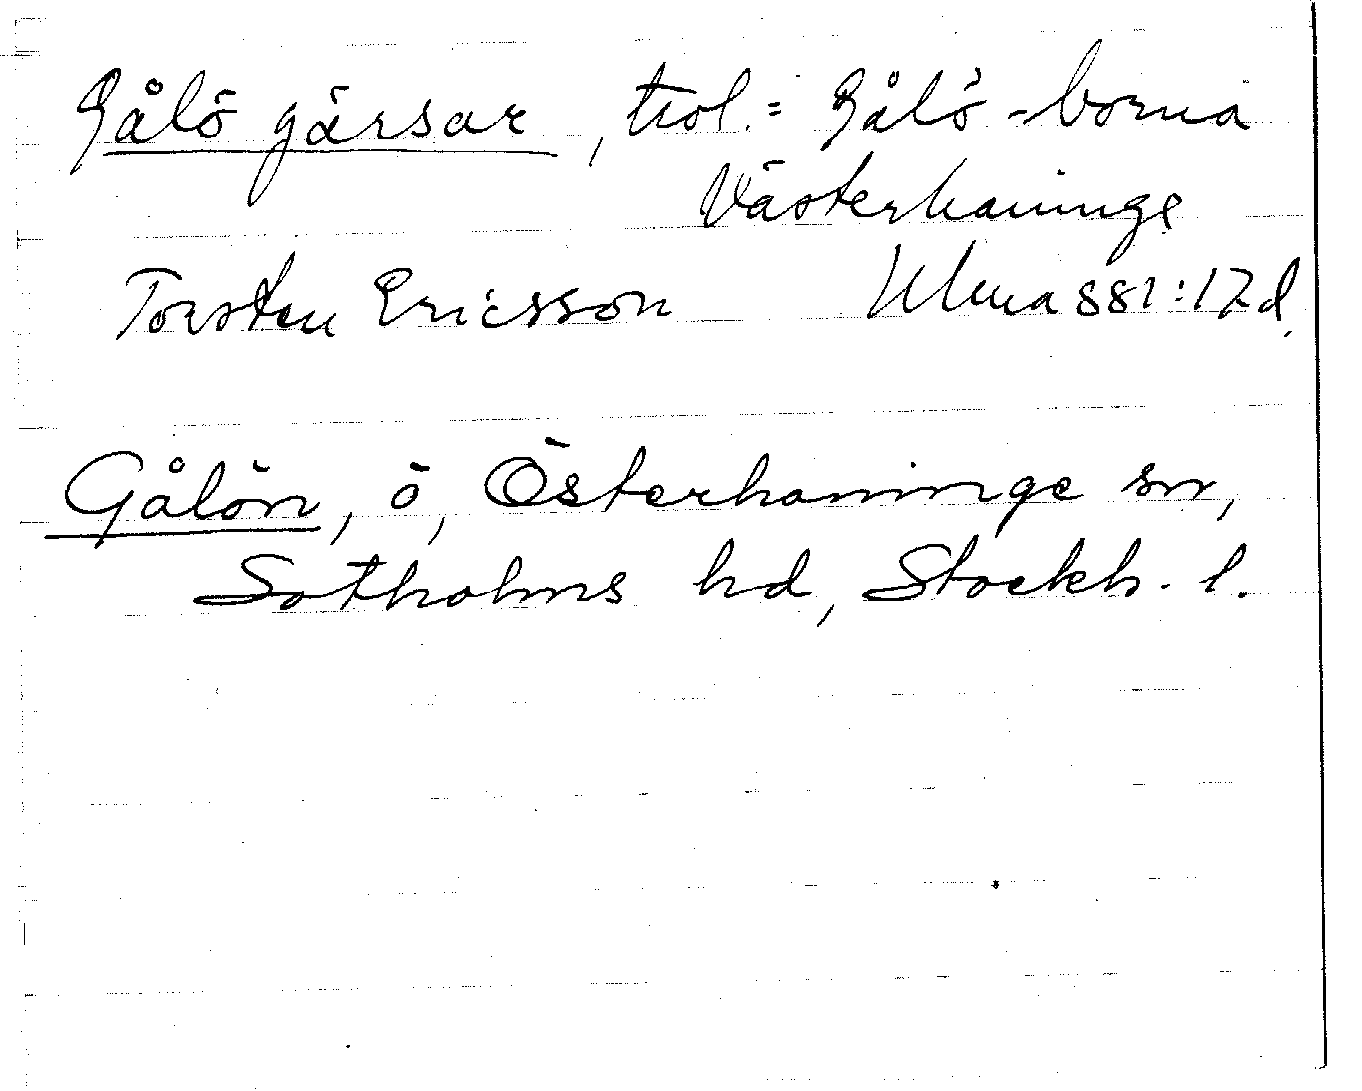 Gålö gärsar, trol. = Gålö-borna
Västerhaninge
Torsten Ericsson Ulma 881:17 d.
Gålön, ö, Österhaninge sn,
Sotholms hd, Stockh. l.